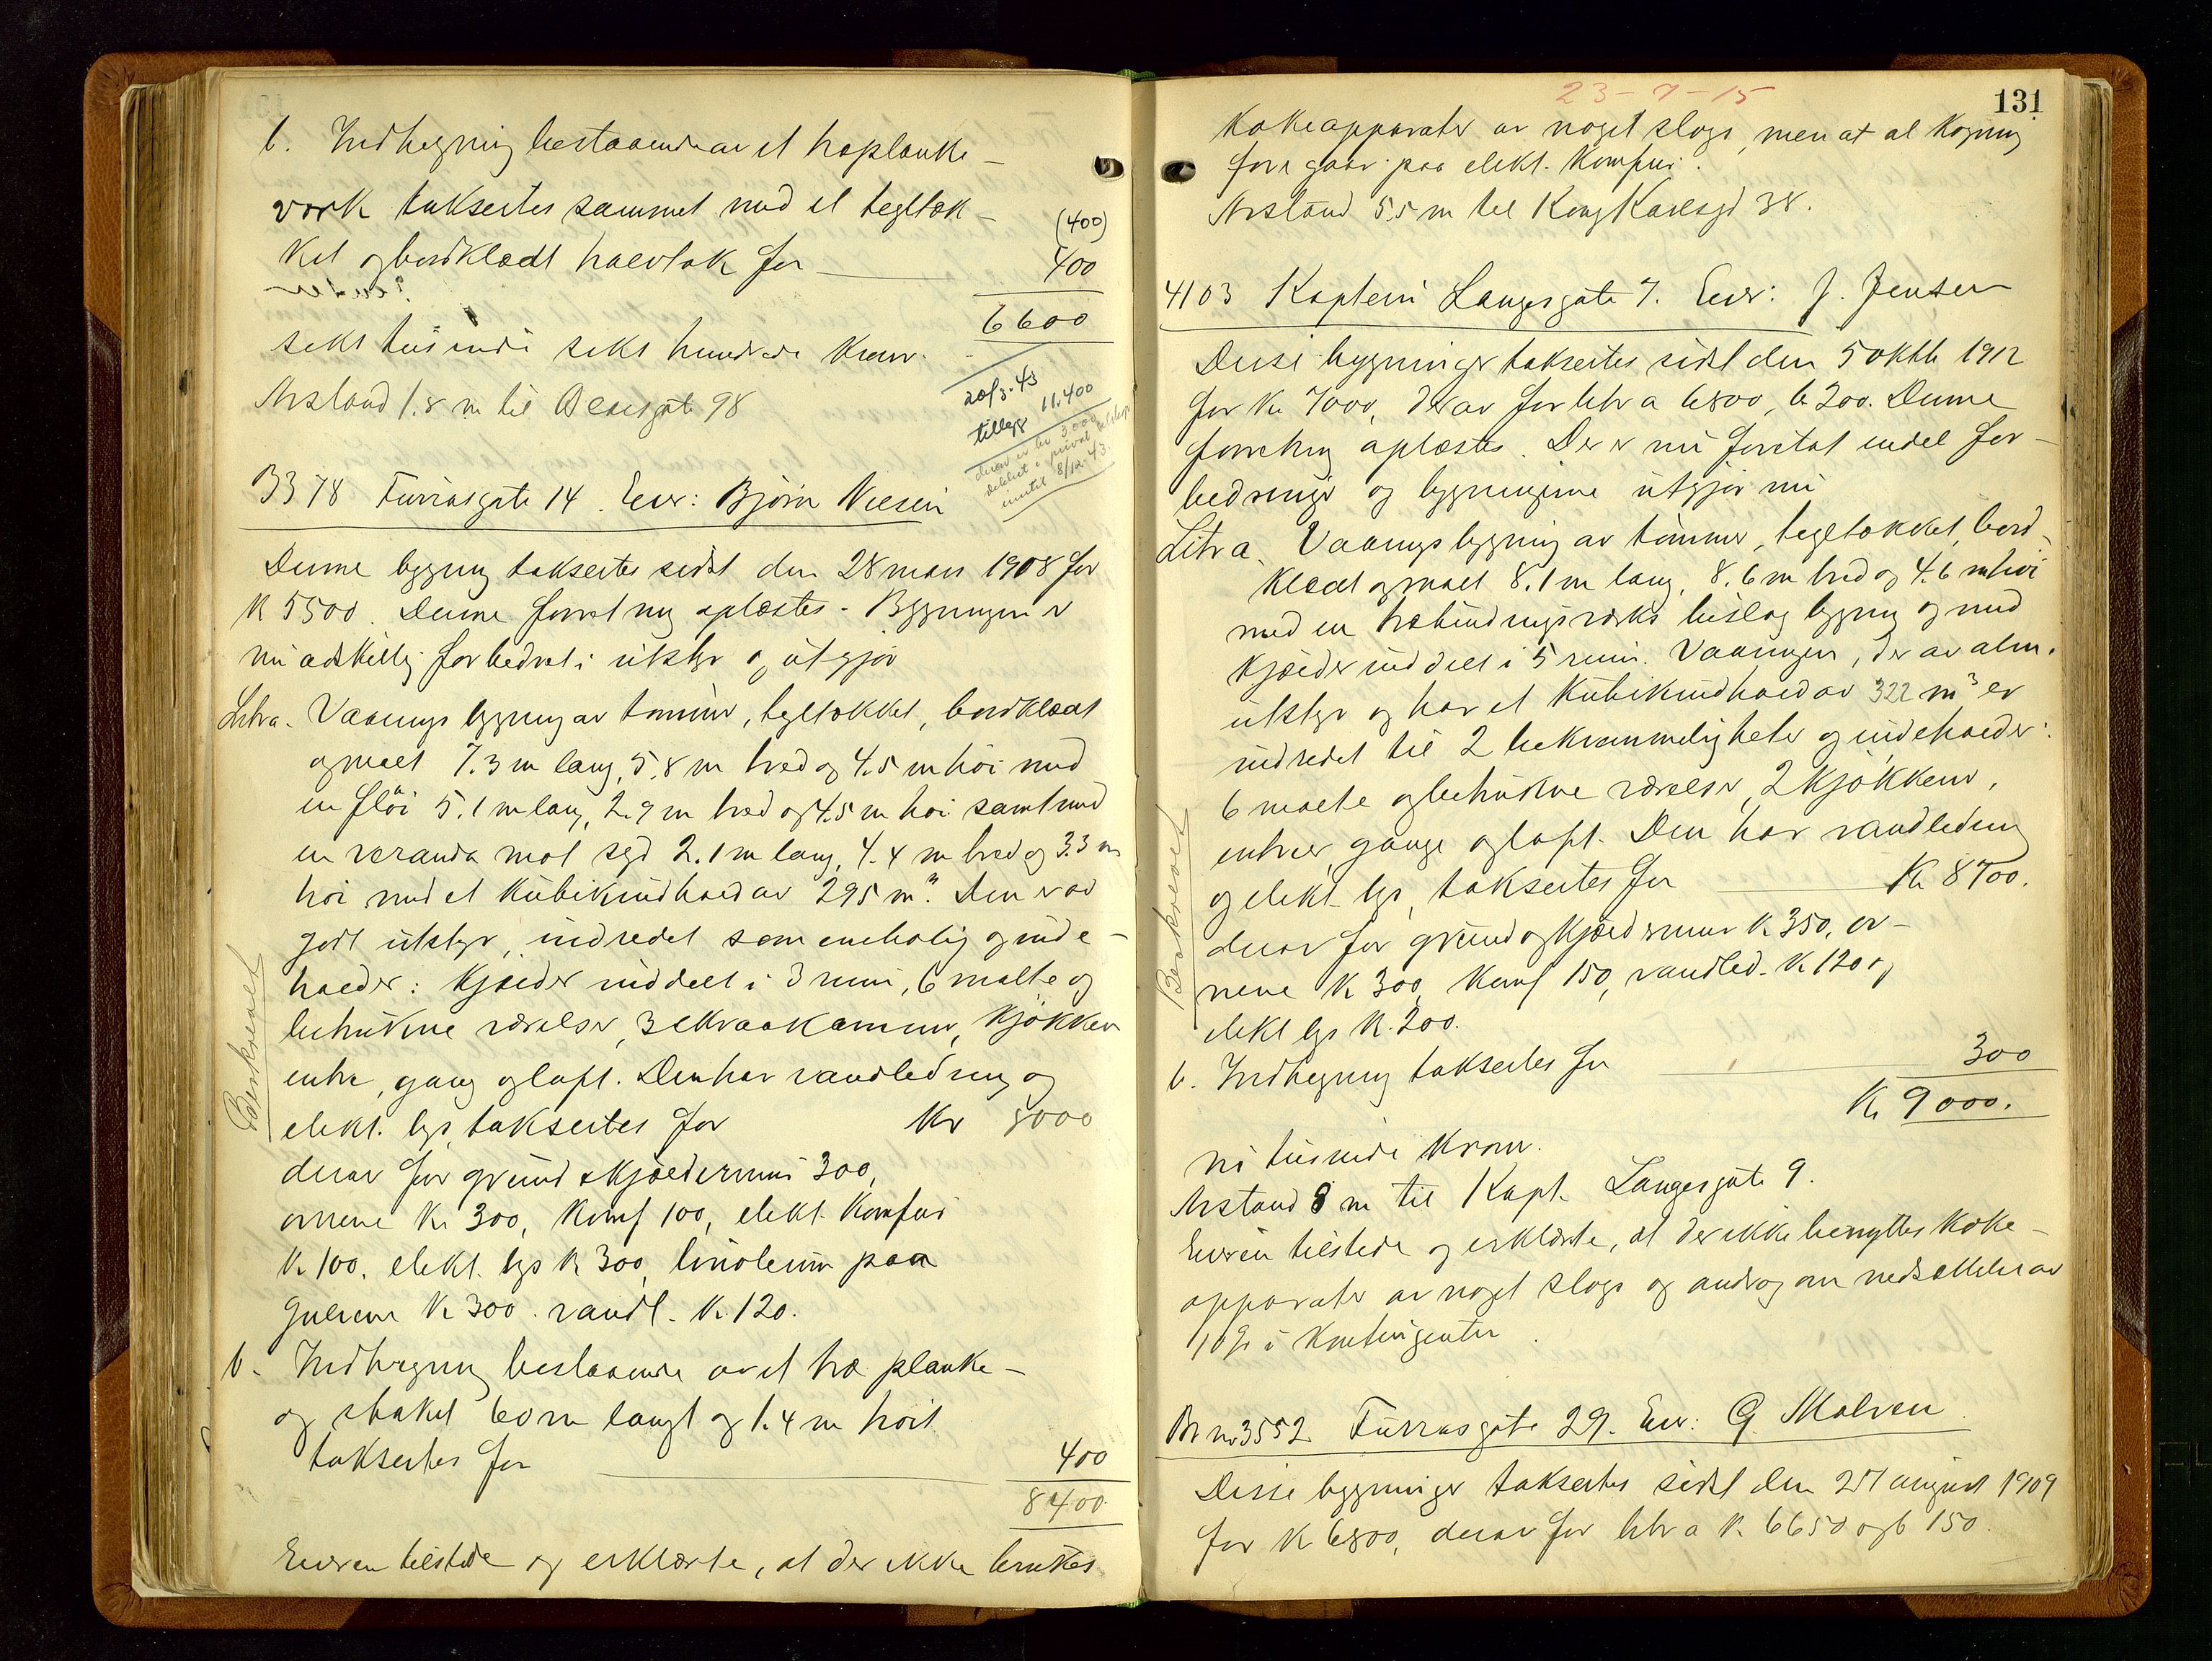 b. Indhegning bestaaende av et træplanke-
verk taksertes sammet med et tegltæk-
ket og bordklædt halvtak for (400)
400
6600
seks tusinde seks hundrede kroner.
Avstand 1.8 m til 98
20/3.43
tillegg 11.400
3378 Furrasgate 14. Eier: Bjørn Nielsen
Denne bygning taksertes sidst den 28 mars 1908 for
K 5500. Denne forretning oplæstes. Bygningen er
nu adskillig forbedret i utstyr og utgjør
Litra a. Vaaningsbygning av tømmer, tegltækket, bordklædt
og malt 7.3 m lang, 5.8 m bred og 4.5 m høi med
en fløi 5.1 m lang, 2.9 m bred og 4.5 m høi samt med
en veranda mot syd 2.1 m lang, 4.4 m bred og 3.3 m
høi med et kubikindhold av 295 m³. Den er av
godt utstyr, indredet som enebolig og inde-
holder: kjælder inddelt i 3 rum, 6 malte og
betrukne værelser, 3 skraakammer, kjøkken
entre, gang og loft. Den har vandledning og
elekt. lys, taksertes for Kr 8000
derav for grund & kjældermur 300,
ovnene Kr 300, Komf 100, elekt. komfur
K 100. elekt. lys K 300, linoleum paa
gulvene K 300. vandl. K 120.
b. Indhegning bestaaende av et træ planke-
og stakit 60 m langt og 1.4 m høit
taksertes for 400
8400
Eieren tilstede og erklærte, at der ikke brukes
23-7-15
131
kokeapparater av noget slags, men at al kogning
foregaar paa elekt. komfur.
Avstand 5.5 m til Kong Karlsgd 38.
4103 Kaptein Langesgate 7. Eier: J. Jensen
Disse bygninger taksertes sidst den 5 oktb 1912
for Kr 7000, derav for litra a 6800, b 200. Denne
forretning oplæstes. Der er nu foretat endel for-
bedringer og bygningerne utgjør nu
Litra a. Vaaningsbygning av tømmer, tegltækket, bord-
klædt og malt 8.1 m lang, 8.6 m bred og 4.6 m høi
med en træbindingsverks bislagbygning og med
kjælder inddelt i 5 rum. Vaaningen, der er av alm.
utstyr og har et kubikindhold av 322 m³ er
indredet til 2 bekvemmeligheter og indeholder:
6 malte og betrukne værelser, 2 kjøkkener,
entreer, gange og loft. Den har vandledning
og elekt. lys, taksertes for Kr 8700.
derav for grund og kjældermur K 350, ov-
nene K 300, komf 150, vandled. K 120 og
elekt lys K. 200.
b. Indhegning taksertes for 300
Kr 9000.
ni tusinde kroner.
Avstand 8 m til Kapt. Langesgate 9.
Eieren tilstede og erklærte, at der ikke benyttes koke-
apparater av noget slags og androg om nedsættelse av
10% i kontingenten.
Br nr 3552 Furrasgate 29. Eier: G. Malven
Disse bygninger taksertes sidst den 27 august 1909
for K 6800, derav for litra a K 6650 og b 150.